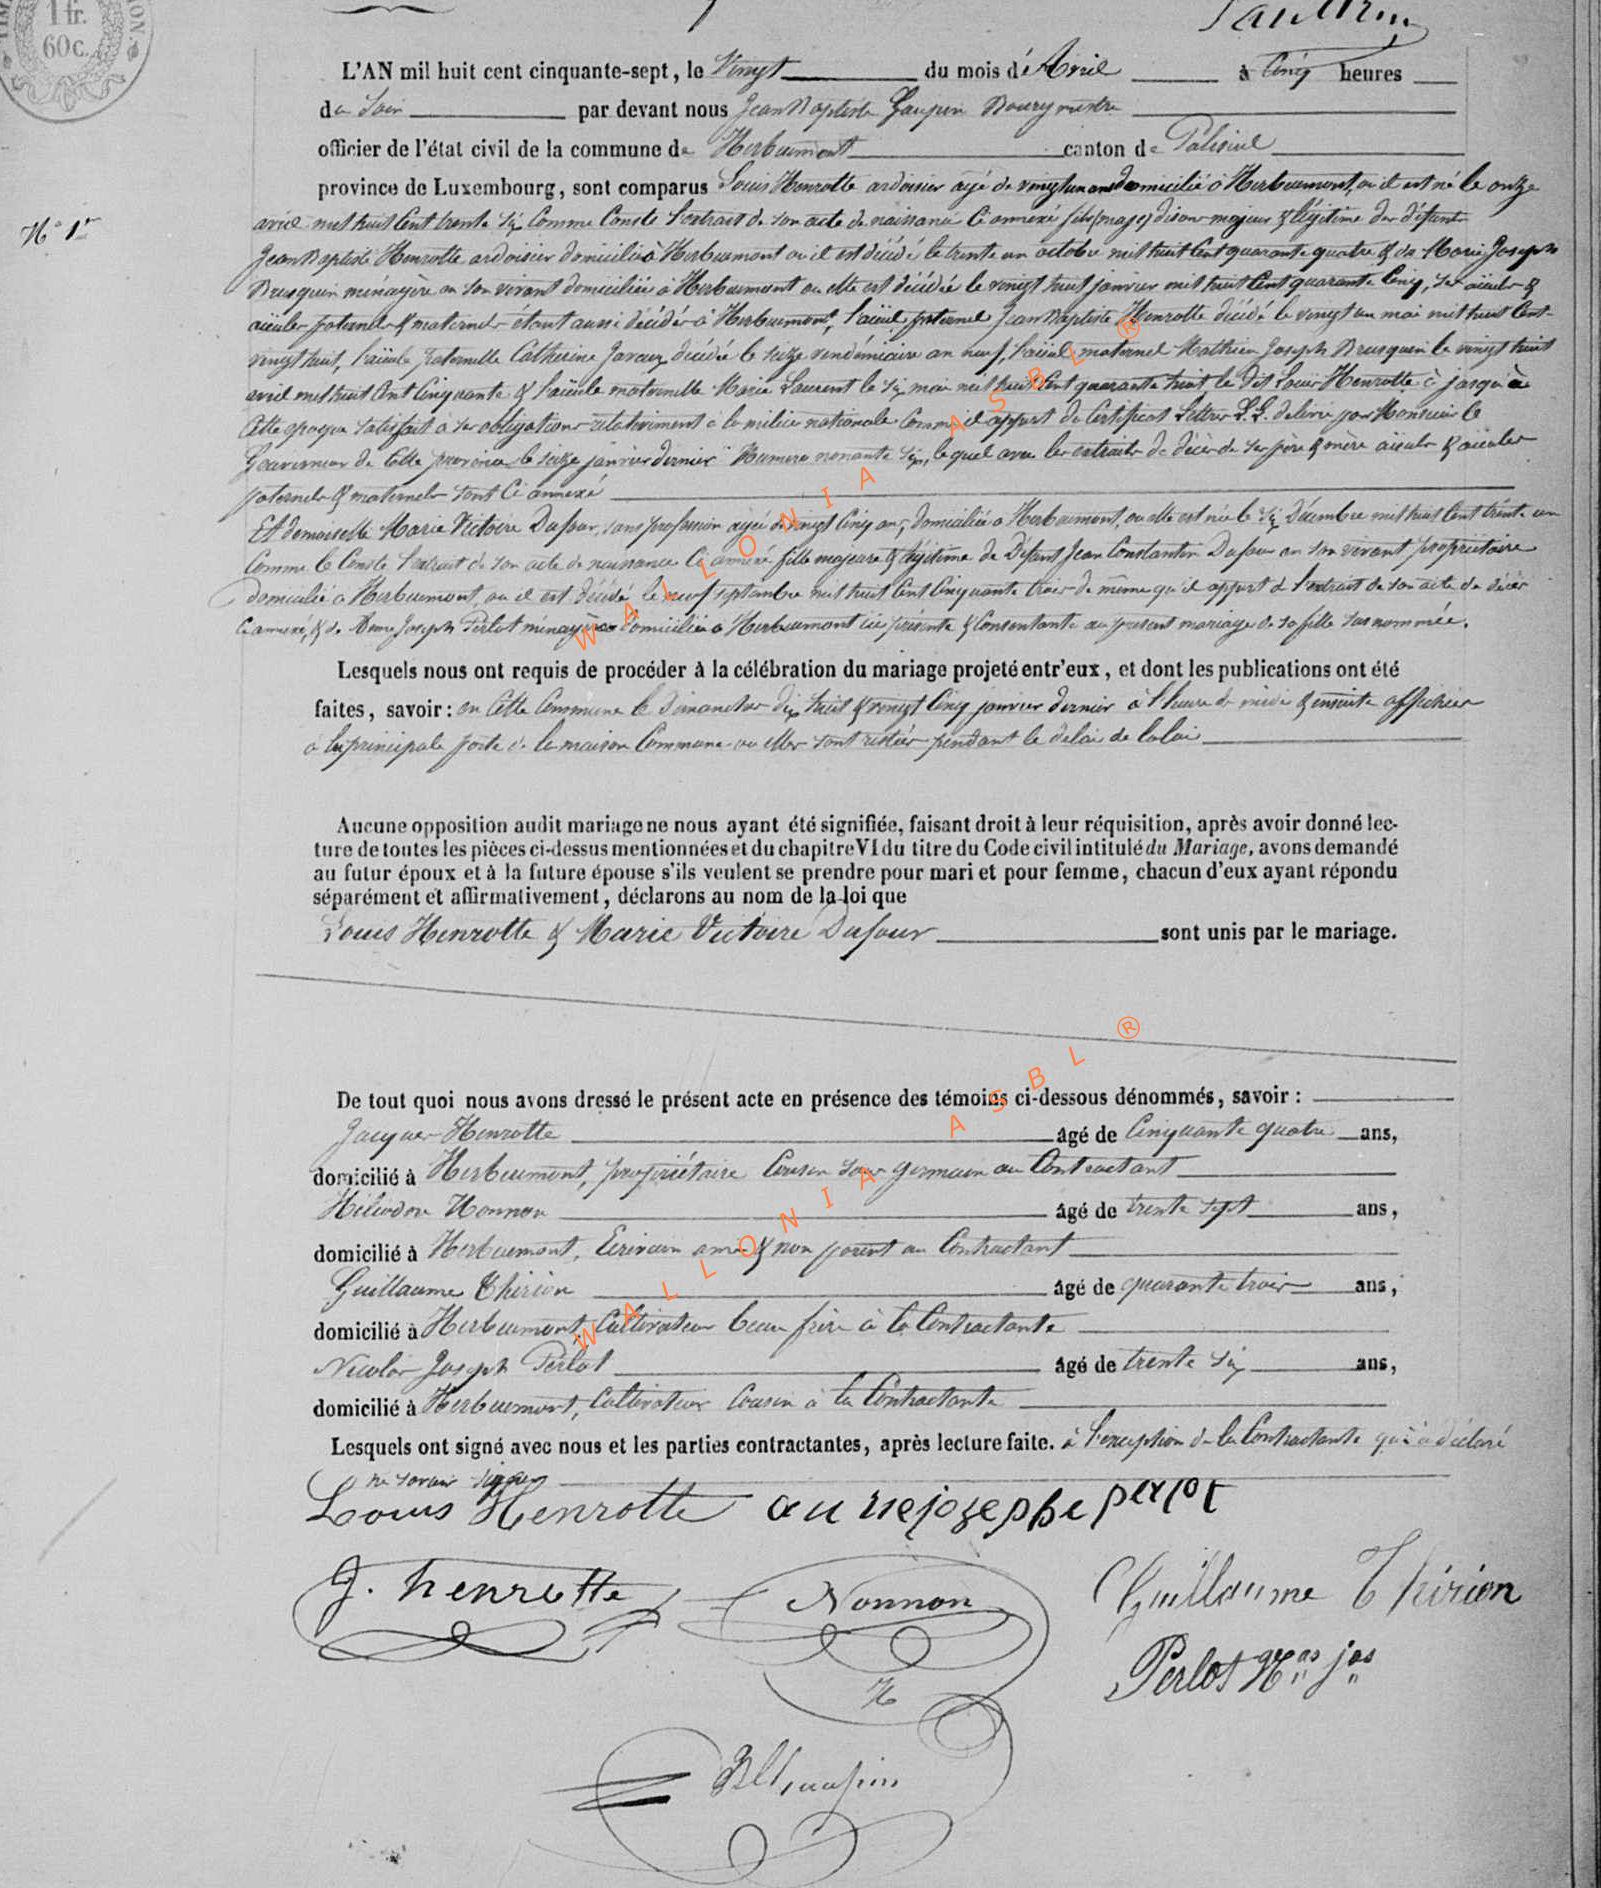 1 fr.
60c.
L'AN mil huit cent cinquante-sept, le Vingt du mois d'Avril à Cinq heures
du Soir par devant nous Jean Baptiste Bourgmestre
officier de l'état civil de la commune de Herbeumont canton de Paliseul
N° 1er
province de Luxembourg, sont comparus Louis Henrotte ardoisier agé de vingt un ans domicilié à Herbeumont, où il est né le onze
avril mil huit Cent trente Six Comme Conste l'extrait de son acte de naissance Ci annexé fils (mage) disons majeur & légitime des défunts
Jean Baptiste Henrotte ardoisier domicilié à Herbeumont où il est décédé le trente un octobre mil huit Cent quarante quatre & de Marie Joseph
Brusquin ménagère en son vivant domiciliée à Herbeumont ou elle est décédée le vingt huit janvier mil huit Cent quarante Cinq, Ses aïeuls &
aïeules paternels & maternels étant aussi décédés à Herbeumont, l'aïeul paternel Jean Baptiste Henrotte décédé le vingt un mai mil huit Cent
vingt huit, l'aïeule paternelle Catherine décédée le seize vendémiaire an neuf, l'aïeul maternel Mathieu Joseph Brusquin le vingt huit
avril mil huit Cent Cinquante & l'aïeule maternelle Marie Laurent le Six mai mil huit Cent quarante huit le dit Louis Henrotte à jusqu'à
Cette époque satisfait à ses obligations relativement à la milice nationale Comme il appert du Certificat Lettres L.L. délivré par Monsieur le
Gouverneur de Cette province le seize janvier dernier Numero nonante Six, lequel avec les extraits de décès de ses père & mère aïeuls & aïeules
paternels & maternels sont Ci annexé
Et demoiselle Marie Victoire Dufour, sans profession agée de vingt Cinq ans, domiciliée à Herbeumont, ou elle est née le Six Décembre mil huit Cent trente un
Comme le Conste l'extrait de son acte de naissance Ci annexé fille majeure & légitime de Défunt Jean Constantin Dufour en son vivant propriétaire
domicilié à Herbeumont, ou il est décédé le neuf septembre mil huit Cent Cinquante trois de même qu'il appert de l'extrait de son acte de décès
Ci annexé, & de Anne Joseph Perlot ménagère domiciliée à Herbeumont ici présente & Consentante au présent mariage de sa fille susnommée.
Lesquels nous ont requis de procéder à la célébration du mariage projeté entr'eux, et dont les publications ont été
faites, savoir : en Cette Commune le Dimanches dix huit & vingt Cinq janvier dernier à l'heure de midi & ensuite affichées
à la principale porte de la maison Commune ou elles sont restées pendant le délai de la loi
Aucune opposition audit mariage ne nous ayant été signifiée, faisant droit à leur réquisition, après avoir donné lec-
ture de toutes les pièces ci-dessus mentionnées et du chapitre VI du titre du Code civil intitulé du Mariage, avons demandé
au futur époux et à la future épouse s'ils veulent se prendre pour mari et pour femme, chacun d'eux ayant répondu
séparément et affirmativement, déclarons au nom de la loi que
Louis Henrotte & Marie Victoire Dufour sont unis par le mariage.
De tout quoi nous avons dressé le présent acte en présence des témoins ci-dessous dénommés, savoir :
Jacques Henrotte âgé de Cinquante quatre ans,
domicilié à Herbeumont, propriétaire Cousin sous germain au Contractant
Héliodore Nonnon âgé de trente sept ans,
domicilié à Herbeumont, Ecrivain ami & non parent au Contractant
Guillaume Thirion âgé de quarante trois ans,
domicilié à Herbeumont, Cultivateur beau frère à la Contractante
Nicolas Joseph Perlot âgé de trente Six ans,
domicilié à Herbeumont, Cultivateur Cousin à la Contractante
Lesquels ont signé avec nous et les parties contractantes, après lecture faite. à l'exception de la Contractante qui à déclaré
ne savoir signer
Louis Henrotte annejozephe perlot
J. henrotte Nonnon Guillaume Thirion
H
Perlot Nas jos
WALLONIA ASBL ®
WALLONIA ASBL ®